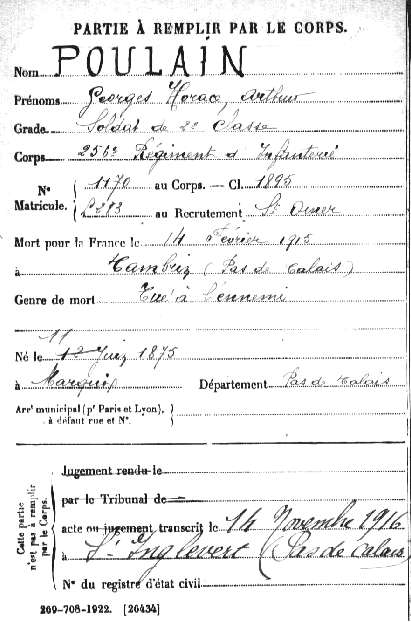 PARTIE À REMPLIR PAR LE CORPS.
Nom POULAIN
Prénoms Georges Horace Arthur
Grade Soldat de 2e Classe
Corps 256e Régiment d'Infanterie
N° Matricule. 1170 au Corps. — Cl. 1895
au Recrutement St Omer
Mort pour la France le 14 Février 1915
à Cambrin (Pas de Calais)
Genre de mort Tué à l'ennemi
11
Né le 12 Juin 1875
à Marquise Département Pas de Calais
Arrt municipal (pr Paris et Lyon),
à défaut rue et N°.
Cette partie n'est pas à remplir par le Corps.
Jugement rendu le
par le Tribunal de
acte ou jugement transcrit le 14 Novembre 1916
à St Inglevert (Pas de Calais)
N° du registre d'état civil
269-708-1922. [26434]